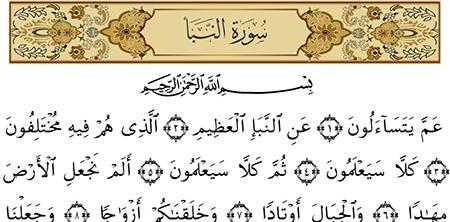 سُورَةُ النَّبَإِ
بِسْمِ اللَّهِ الرَّحْمَٰنِ الرَّحِيمِ
عَمَّ يَتَسَآءَلُونَ ﴿١﴾ عَنِ النَّبَإِ الْعَظِيمِ ﴿٢﴾ الَّذِى هُمْ فِيهِ مُخْتَلِفُونَ
﴿٣﴾ كَلَّا سَيَعْلَمُونَ ﴿٤﴾ ثُمَّ كَلَّا سَيَعْلَمُونَ ﴿٥﴾ أَلَمْ نَجْعَلِ الْأَرْضَ
مِهَٰدًا ﴿٦﴾ وَالْجِبَالَ أَوْتَادًا ﴿٧﴾ وَخَلَقْنَٰكُمْ أَزْوَٰجًا ﴿٨﴾ وَجَعَلْنَا